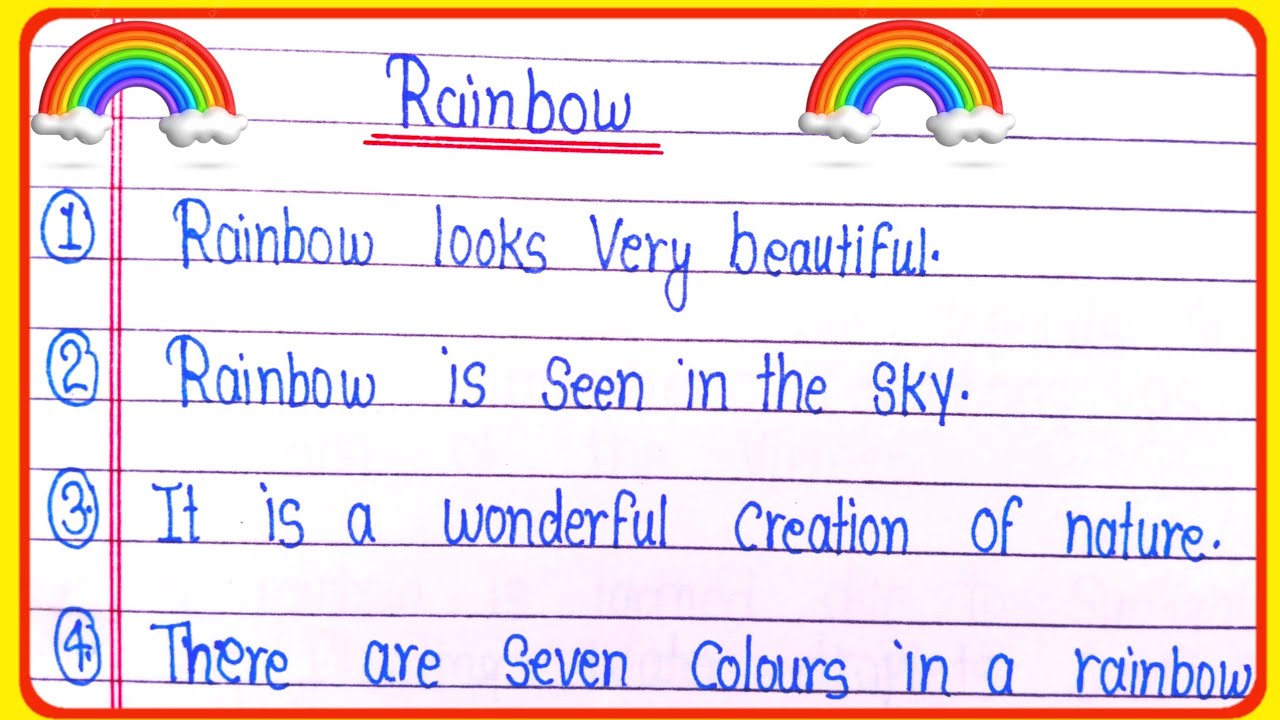 Rainbow
1 Rainbow looks Very beautiful.
2 Rainbow is Seen in the sky.
3. It is a wonderful creation of nature.
4. There are Seven Colours in a rainbow